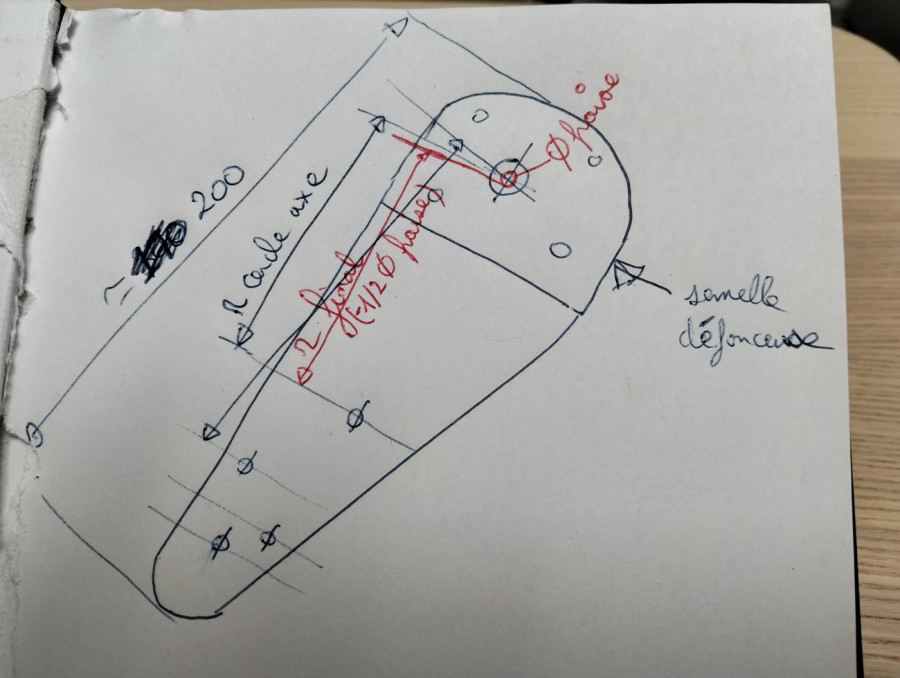 ≈ 200
R cercle axe
R final
(-1/2 Ø fraise)
Ø fraise
semelle
défonceuse
Ø
Ø
Ø
Ø